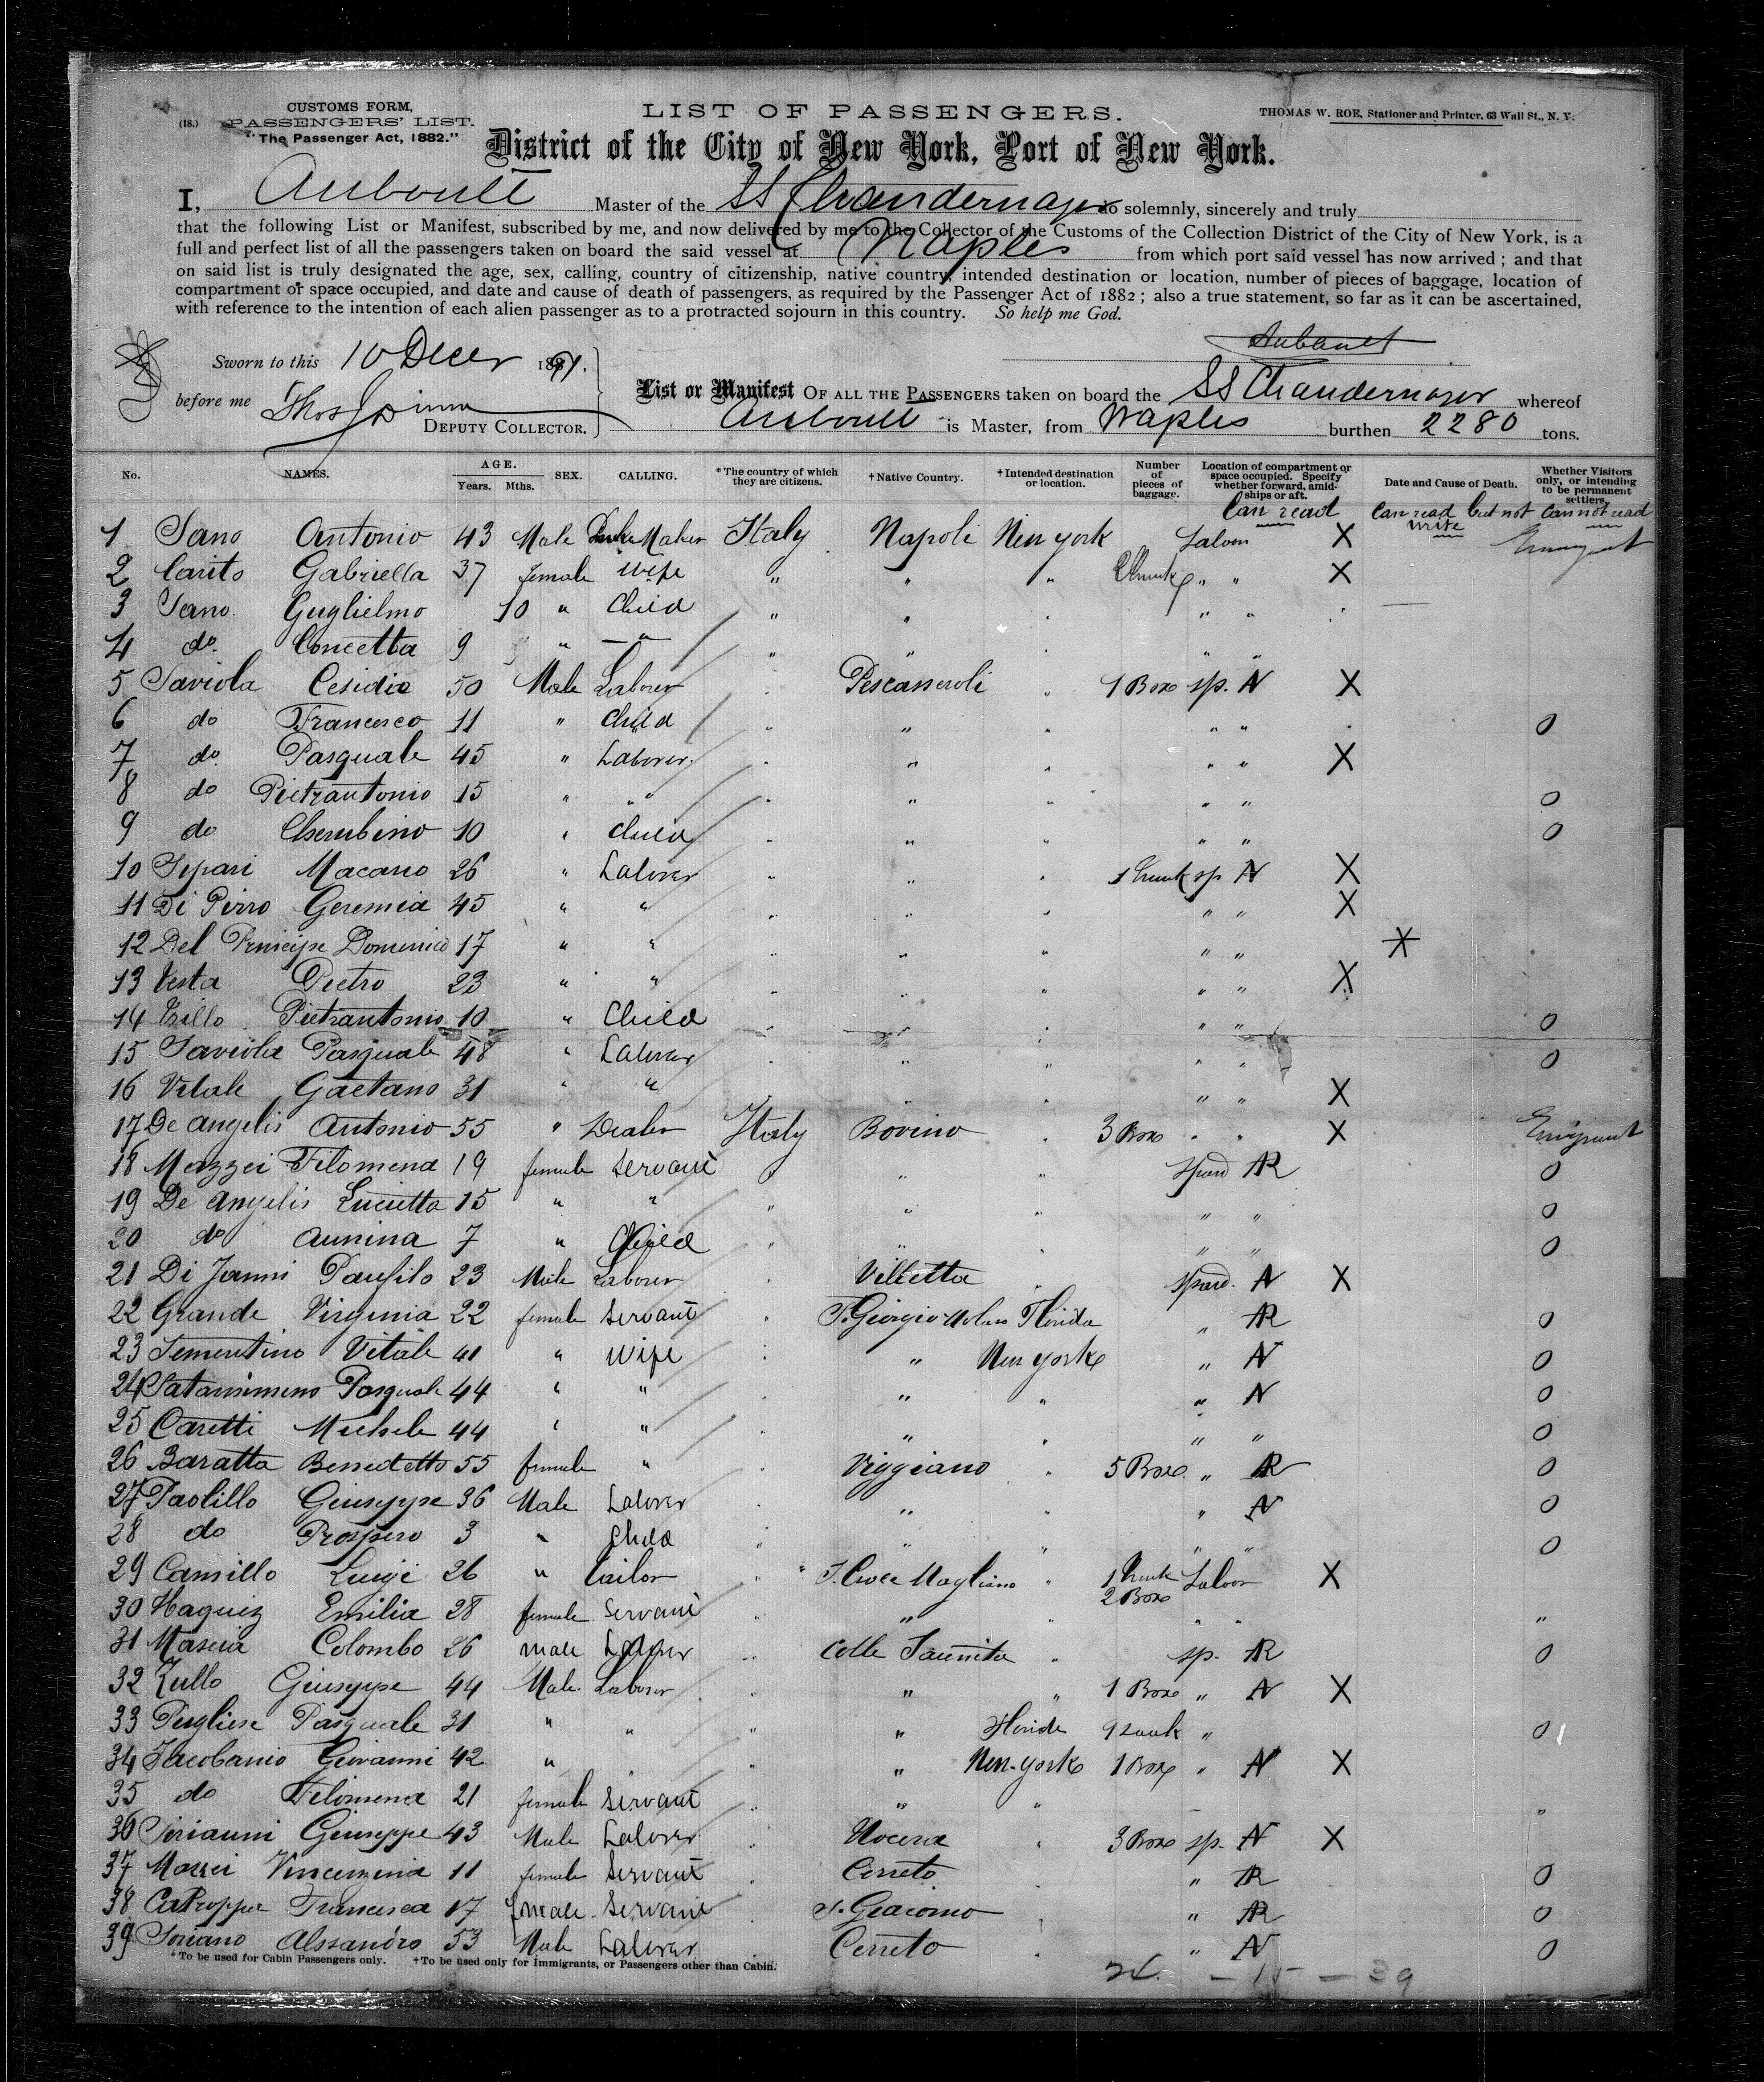 CUSTOMS FORM,
(18.) PASSENGERS' LIST.
"The Passenger Act, 1882."
LIST OF PASSENGERS.
THOMAS W. ROE, Stationer and Printer, 63 Wall St., N. Y.
District of the City of New York, Port of New York.
I, Auboult Master of the SS Chandernagor do solemnly, sincerely and truly
that the following List or Manifest, subscribed by me, and now delivered by me to the Collector of the Customs of the Collection District of the City of New York, is a
full and perfect list of all the passengers taken on board the said vessel at Naples from which port said vessel has now arrived ; and that
on said list is truly designated the age, sex, calling, country of citizenship, native country, intended destination or location, number of pieces of baggage, location of
compartment or space occupied, and date and cause of death of passengers, as required by the Passenger Act of 1882 ; also a true statement, so far as it can be ascertained,
with reference to the intention of each alien passenger as to a protracted sojourn in this country. So help me God.
Auboult
Sworn to this 10 Decer 1891.
before me
DEPUTY COLLECTOR.
List or Manifest OF ALL THE PASSENGERS taken on board the SS Chandernagor whereof
Auboult is Master, from Naples burthen 2280 tons.
No. NAMES. AGE. Years. Mths. SEX. CALLING. *The country of which they are citizens. †Native Country. †Intended destination or location. Number of pieces of baggage. Location of compartment or space occupied. Specify whether forward, amidships or aft. Date and Cause of Death. Whether Visitors only, or intending to be permanent settlers.
Can read Can read but not write Cannot read
1 Sano Antonio 43 Male Maker Italy Napoli New York Saloon X Emigrant
2 Carito Gabriella 37 female wife " " " " " X
3 Sano Guglielmo 10 " Child " " " "
4 do. Concetta 9 " " " " " " "
5 Saviola Cesidio 50 Male Laborer Pescasseroli 1 Box sp. N X
6 do Francesco 11 " Child " " " " 0
7 do Pasquale 45 " Laborer " " " X
8 do Pietrantonio 15 " " " " " 0
9 do Cherubino 10 " Child " " " 0
10 Sipari Macario 26 " Laborer " " 1 trunk sp N X
11 Di Pirro Geremia 45 " " " " " " X
12 Del Principe Domenico 17 " " " " " " X
13 Vesta Pietro 23 " " " " " X
14 Trillo Pietrantonio 10 " Child " " " 0
15 Saviola Pasquale 48 " Laborer " 0
16 Vitale Gaetano 31 " " " " " X
17 De Angelis Antonio 55 " Dealer Italy Bovino 3 Box " " X Emigrant
18 Mazzei Filomena 19 female Servant " " AR 0
19 De Angelis Lucietta 15 " " " " " " 0
20 do Annina 7 " Child " " " " 0
21 Di Janni Panfilo 23 Male Laborer Villetta N X
22 Grande Virginia 22 female Servant S. Giorgio Molara Florida " AR 0
23 Sementino Vitale 41 " wife " New York " N 0
24 Pasquale 44 " " " " " N 0
25 Caretti Michele 44 " " " " " 0
26 Baratta Benedetto 55 female " Viggiano 5 Box " AR 0
27 Paolillo Giuseppe 36 Male Laborer " " N 0
28 do Prospero 3 " Child " " " " 0
29 Camillo Luigi 26 " tailor S. Croce Magliano 1 trunk 2 Box Saloon X
30 Emilia 28 female Servant " " " "
31 Maseia Colombo 26 male Laborer Colle Sannita sp. AR 0
32 Zullo Giuseppe 44 Male Laborer " " 1 Box " N X
33 Pugliese Pasquale 31 " " " Florida " 0
34 Iacobacio Giovanni 42 " " " New-York 1 Box " N X
35 do Filomena 21 female Servant " " "
36 Sirianni Giuseppe 43 Male Laborer Nocera 3 Box sp. N X
37 Mazzei Vincenzina 11 female Servant Cerreto " AR 0
38 Francesca 17 female Servant S. Giacomo " AR 0
39 Soriano Alssandro 53 Male Laborer Cerreto " N 0
*To be used for Cabin Passengers only. †To be used only for Immigrants, or Passengers other than Cabin.
24. — 15 — 39